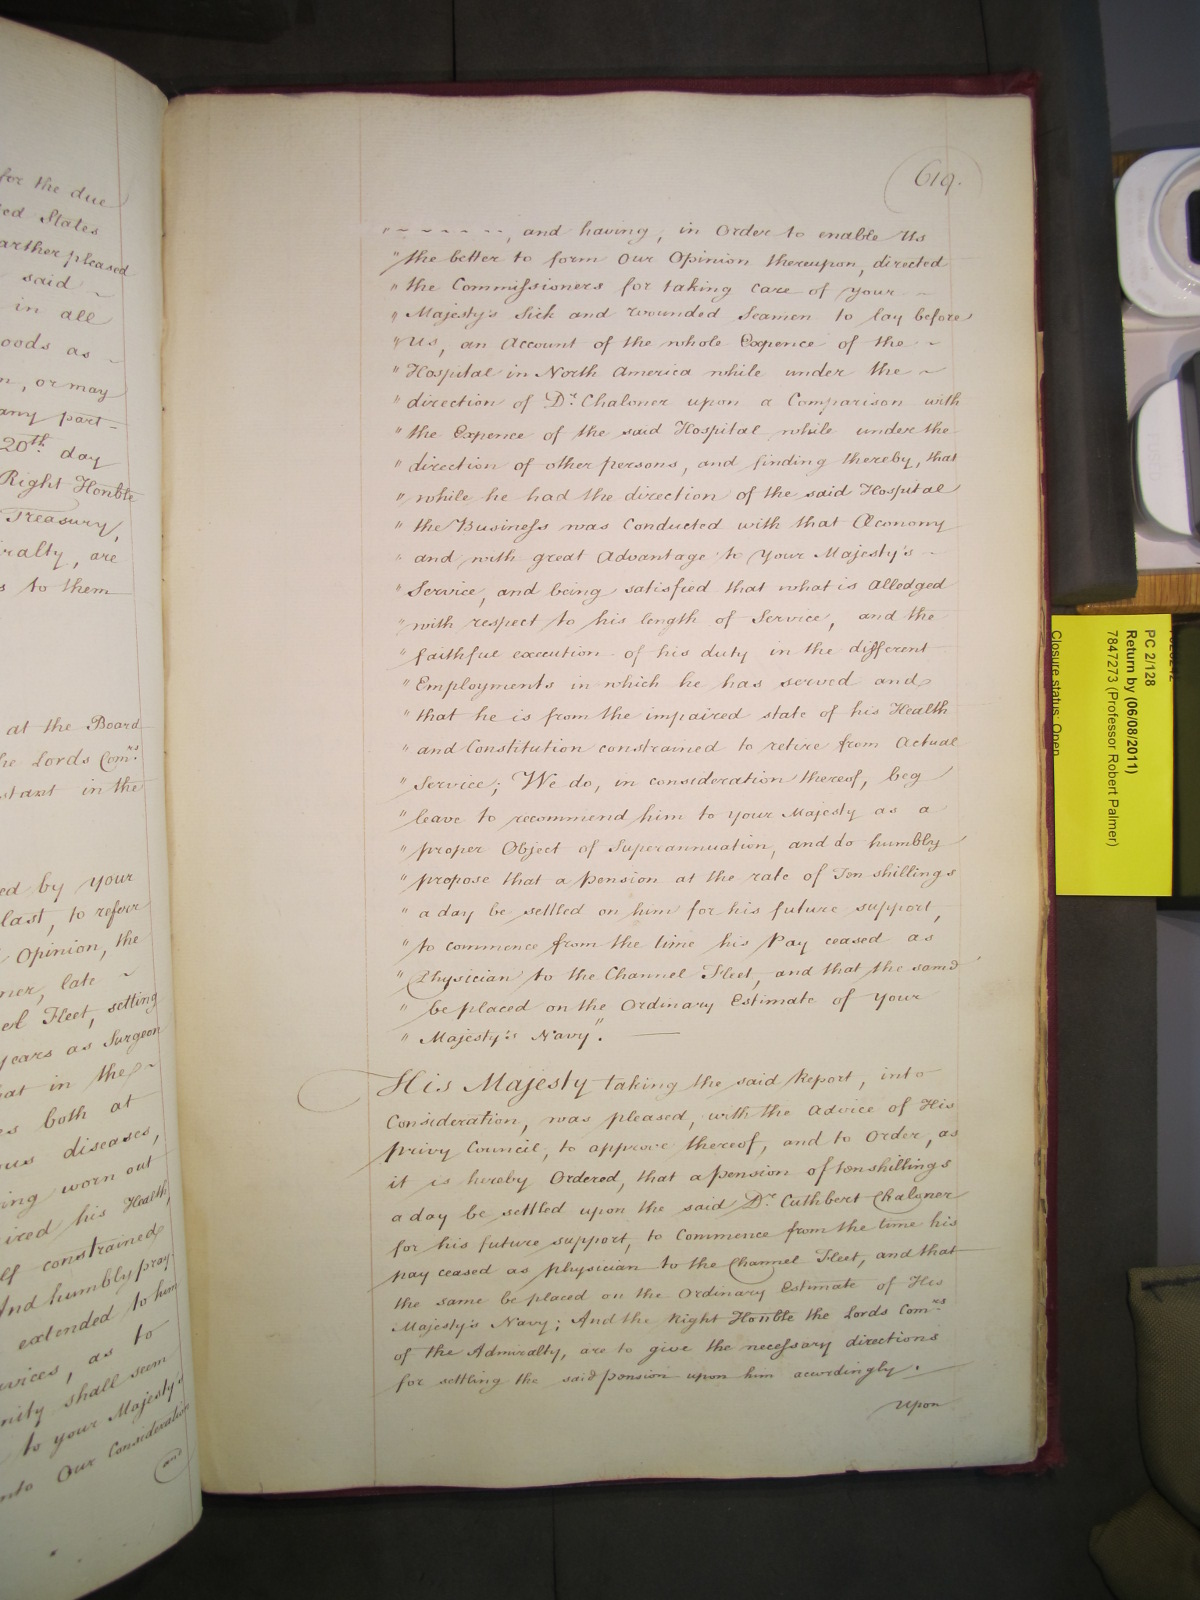 for the due
ed States
arther pleased
said ~
in all
oods as ~
n, or may
any part
20th. day
Right Honble
Treasury,
ralty, are
s to them
at the Board
he Lords Comrs.
stant in the
ed by your
last, to referr
Opinion, the
ner, late ~
el Fleet, setting
years as Surgeon
at in the ~
es both at
ous diseases,
ing worn out
ired his Health,
lf constrained
And humbly pray
extended to him
rvices, as to
nity shall seem
to your Majesty's
nto Our Consideration
and
619.
" ~ ~ ~ ~ ~ ~, and having, in Order to enable Us
" the better to form Our Opinion thereupon, directed
" the Commissioners for taking care of your ~
" Majesty's Sick and wounded Seamen to lay before
" Us, an Account of the whole Expence of the ~
" Hospital in North America while under the ~
" direction of Dr. Chaloner upon a Comparison with
" the Expence of the said Hospital while under the
" direction of other persons, and finding thereby, that
" while he had the direction of the said Hospital
" the Business was Conducted with that Œconomy
" and with great Advantage to Your Majesty's ~
" Service, and being satisfied that what is Alledged
" with respect to his length of Service, and the
" faithful execution of his duty in the different
" Employments in which he has served and
" that he is from the impaired state of his Health
" and Constitution constrained to retire from Actual
" Service; We do, in consideration thereof, beg
" leave to recommend him to your Majesty as a
" proper Object of Superannuation, and do humbly
" propose that a Pension at the rate of Ten shillings
" a day be settled on him for his future support,
" to commence from the time his Pay ceased as
" Physician to the Channel Fleet, and that the same
" be placed on the Ordinary Estimate of your
" Majesty's Navy".
His Majesty taking the said Report, into
Consideration, was pleased, with the Advice of His
privy Council, to approve thereof, and to Order, as
it is hereby Ordered, that a pension of ten shillings
a day be settled upon the said Dr. Cuthbert Chaloner
for his future support, to Commence from the time his
pay ceased as physician to the Channel Fleet, and that
the same be placed on the Ordinary Estimate of His
Majesty's Navy; And the Right Honble the Lords Comrs.
of the Admiralty, are to give the necessary directions
for settling the said pension upon him accordingly.
Upon
PC 2/128
Return by (06/08/2011)
7847273 (Professor Robert Palmer)
Closure status: Open